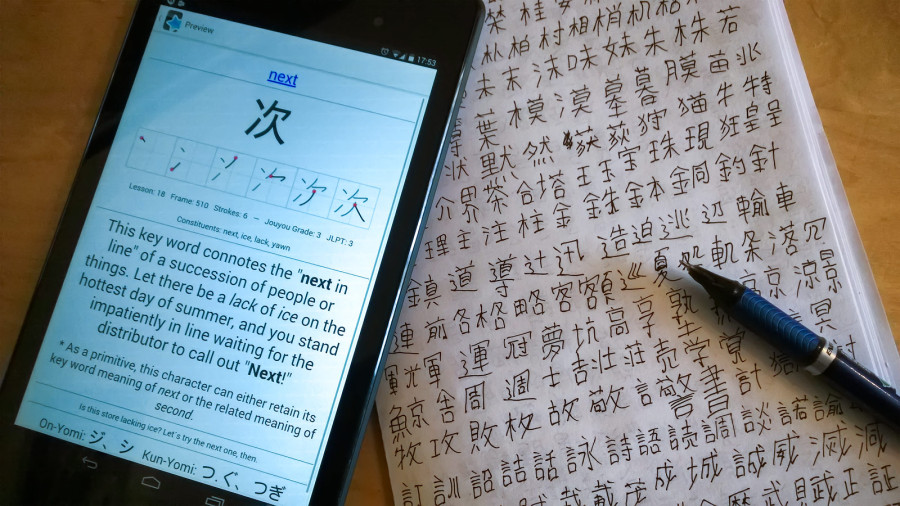 Preview
17:53
next
次
Lesson: 18 Frame: 510 Strokes: 6 – Jouyou Grade: 3 JLPT: 3
Constituents: next, ice, lack, yawn
This key word connotes the "next in
line" of a succession of people or
things. Let there be a lack of ice on the
hottest day of summer, and you stand
impatiently in line waiting for the
distributor to call out "Next!"
* As a primitive, this character can either retain its
key word meaning of next or the related meaning of
second.
Is this store lacking ice? Let´s try the next one, then.
On-Yomi: ジ、シ Kun-Yomi: つ.ぐ、 つぎ
桂
朴 柏 村 相 梢 机
末 沫 味 妹 朱 株 若
葉 模 漠 墓 暮 膜 苗 兆
状 黙 然 荻 狩 猫 牛 特
介 界 茶 合 塔 王 玉 宝 珠 現 狂 皇 呈
理 主 注 柱 金 銑 鉢 銅 釣 針
鎮 道 導 辻 迅 造 迫 逃 辺 輸 車
連 前 各 格 略 客 額 巡 夏 処 軌 条 落 冗
軍 運 冠 夢 坑 高 享 塾 熟 京 涼 景
鯨 舎 周 週 士 吉 壮 荘 売 学 覚
牧 攻 敗 枚 故 敬 言 警 計
訂 訓 詔 詰 話 詠 詩 語 読 調 談 諾 諭
茂 成 城 誠 威 滅 減
武 賦 正 証